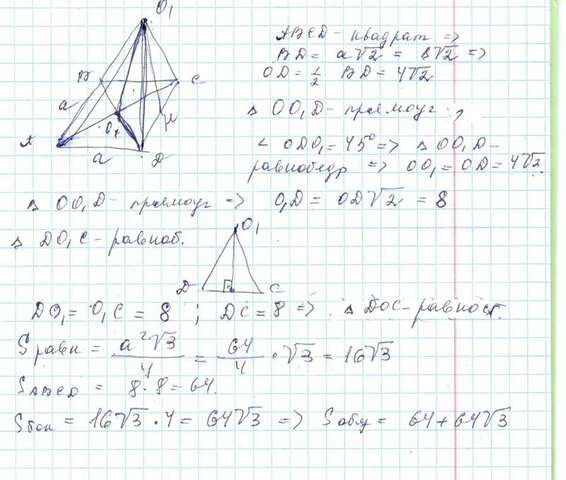 O₁
ABCD - квадрат =>
BD = a√2 = 8√2 =>
OD = 1/2 BD = 4√2
B
C
a
△ OO₁D - прямоуг,
A
O
a
D
∠ ODO₁ = 45° => △ OO₁D -
равнобедр => OO₁ = OD = 4√2
△ OO₁D - прямоуг => O₁D = OD√2 = 8
△ DO₁C - равноб.
O₁
D
C
DO₁ = O₁C = 8 ; DC = 8 => △ DOC - равност.
S равн = a²√3/4 = 64/4 · √3 = 16√3
S ABCD = 8·8 = 64.
S бок = 16√3 · 4 = 64√3 => S общ = 64 + 64√3